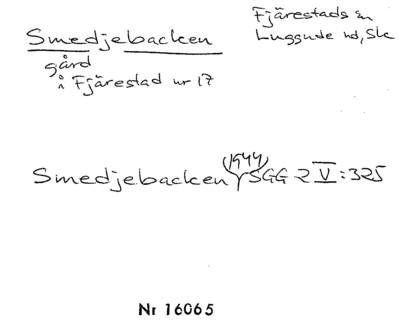 Smedjebacken
gård
å Fjärestad nr 17
Fjärestads sn
Luggude hd, Sk
Smedjebacken (1944) SGG 2 V:325
Nr 16065